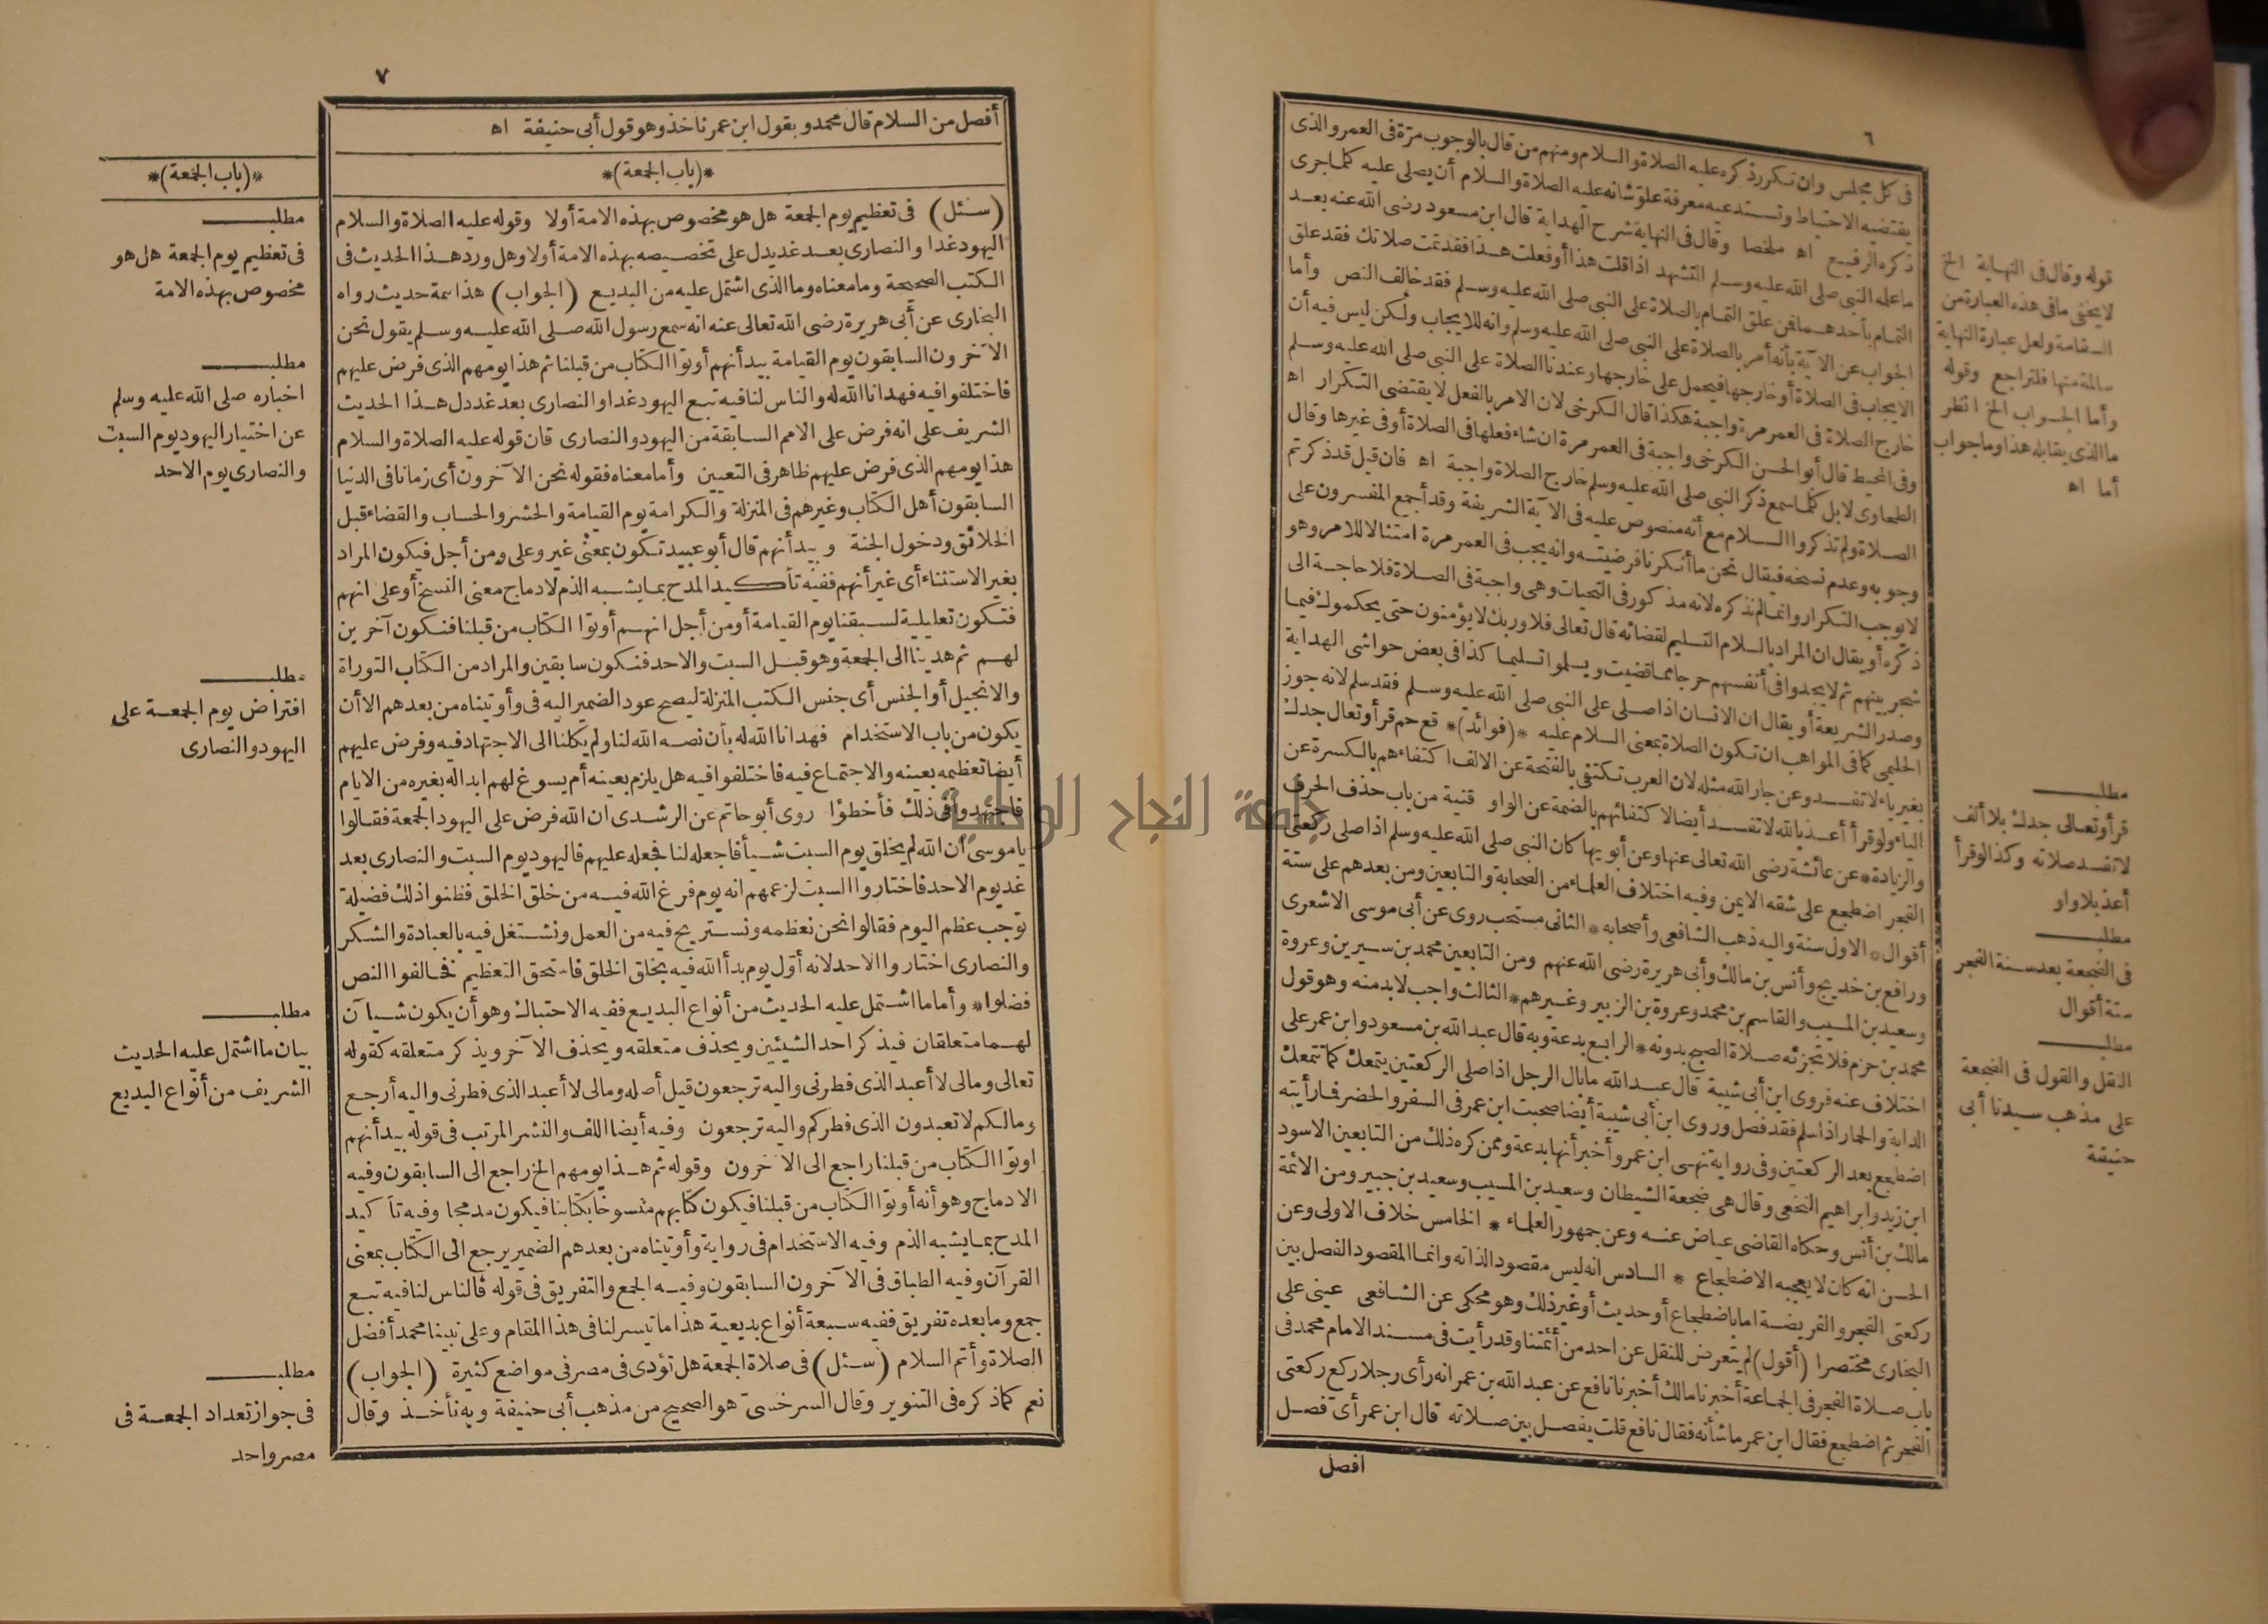 ٦
فى كل مجلس وان تكرر ذكره عليه الصلاة والسلام ومنهم من قال بالوجوب مرة فى العمر والذى
يقتضيه الاحتياط وتستدعيه معرفة علو شانه عليه الصلاة والسلام أن يصلى عليه كلما جرى
ذكره الرفيع اه ملخصا وقال فى النهاية شرح الهداية قال ابن مسعود رضى الله عنه بعد
ما علمه النبى صلى الله عليه وسلم التشهد اذا قلت هذا أو فعلت هذا فقد تمت صلاتك فقد علق
التمام بأحدهما فمن علق التمام بالصلاة على النبى صلى الله عليه وسلم فقد خالف النص وأما
الجواب عن الآية بأنه أمر بالصلاة على النبى صلى الله عليه وسلم وانه للايجاب ولكن ليس فيه أن
الايجاب فى الصلاة أو خارجها فيحمل على خارجها وعندنا الصلاة على النبى صلى الله عليه وسلم
خارج الصلاة فى العمر مرة واجبة هكذا قال الكرخى لان الامر بالفعل لا يقتضى التكرار اه
وفى المحيط قال أبو الحسن الكرخى واجبة فى العمر مرة ان شاء فعلها فى الصلاة أو فى غيرها وقال
الطحاوى لا بل كلما سمع ذكر النبى صلى الله عليه وسلم خارج الصلاة واجبة اه فان قيل قد ذكرتم
الصلاة ولم تذكروا السلام مع أنه منصوص عليه فى الآية الشريفة وقد أجمع المفسرون على
وجوبه وعدم نسخه فيقال نحن ما أنكرنا فرضيته وانه يجب فى العمر مرة امتثالا للامر وهو
لا يوجب التكرار وانما لم نذكره لانه مذكور فى التحيات وهى واجبة فى الصلاة فلا حاجة الى
ذكره أو يقال ان المراد بالسلام التسليم لقضائه قال تعالى فلا وربك لا يؤمنون حتى يحكموك فيما
شجر بينهم ثم لا يجدوا فى أنفسهم حرجا مما قضيت ويسلموا تسليما كذا فى بعض حواشى الهداية
وصدر الشريعة أو يقال ان الانسان اذا صلى على النبى صلى الله عليه وسلم فقد سلم لانه جوز
الحليمى كما فى المواهب ان تكون الصلاة بمعنى السلام عليه *(فوائد)* قع حم قرأ وتعال جدك
بغير ياء لا تفسد وعن جار الله مثله لان العرب تكتفى بالفتحة عن الالف اكتفاءهم بالكسرة عن
الياء ولو قرأ أعذ بالله لا تفسد أيضا لاكتفائهم بالضمة عن الواو قنية من باب حذف الحرف
والزيادة * عن عائشة رضى الله تعالى عنها وعن أبويها كان النبى صلى الله عليه وسلم اذا صلى ركعتى
الفجر اضطجع على شقه الايمن وفيه اختلاف العلماء من الصحابة والتابعين ومن بعدهم على ستة
أقوال * الاول سنة واليه ذهب الشافعى وأصحابه * الثانى مستحب روى عن أبى موسى الاشعرى
ورافع بن خديج وأنس بن مالك وأبى هريرة رضى الله عنهم ومن التابعين محمد بن سيرين وعروة
وسعيد بن المسيب والقاسم بن محمد وعروة بن الزبير وغيرهم * الثالث واجب لا بد منه وهو قول
محمد بن حزم فلا تجزئه صلاة الصبح بدونه * الرابع بدعة وبه قال عبد الله بن مسعود وابن عمر على
اختلاف عنه فروى ابن أبى شيبة قال عبد الله ما بال الرجل اذا صلى الركعتين يتمعك كما تتمعك
الدابة والحمار اذا سلم فقد فصل وروى ابن أبى شيبة أيضا صحبت ابن عمر فى السفر والحضر فما رأيته
اضطجع بعد الركعتين وفى رواية نهى ابن عمر وأخبر أنها بدعة وممن كره ذلك من التابعين الاسود
ابن زيد وابراهيم النخعى وقال هى ضجعة الشيطان وسعيد بن المسيب وسعيد بن جبير ومن الائمة
مالك بن أنس وحكاه القاضى عياض عنه وعن جمهور العلماء * الخامس خلاف الاولى وعن
الحسن انه كان لا يعجبه الاضطجاع * السادس انه ليس مقصودا لذاته وانما المقصود الفصل بين
ركعتى الفجر والفريضة اما باضطجاع أو حديث أو غير ذلك وهو محكى عن الشافعى عينى على
البخارى مختصرا (أقول) لم يتعرض للنقل عن احد من أئمتنا وقد رأيت فى مسند الامام محمد فى
باب صلاة الفجر فى الجماعة أخبرنا مالك أخبرنا نافع عن عبد الله بن عمر انه رأى رجلا ركع ركعتى
الفجر ثم اضطجع فقال ابن عمر ما شأنه فقال نافع قلت يفصل بين صلاته قال ابن عمر أى فصل
افصل
قوله وقال فى النهاية الخ
لا يخفى ما فى هذه العبارة من
السقامة ولعل عبارة النهاية
سالمة منها فلتراجع وقوله
وأما الجواب الخ انظر
ما الذى يقابله هذا وما جواب
أما اه
مطلب
قرأ وتعالى جدك بلا ألف
لا تفسد صلاته وكذا لو قرأ
أعذ بلا واو
مطلب
فى الضجعة بعد سنة الفجر
ستة أقوال
مطلب
النقل والقول فى الضجعة
على مذهب سيدنا أبى
حنيفة
٧
أفصل من السلام قال محمد وبقول ابن عمر نأخذ وهو قول أبى حنيفة اه
*(باب الجمعة)*
(سئل) فى تعظيم يوم الجمعة هل هو مخصوص بهذه الامة أولا وقوله عليه الصلاة والسلام
اليهود غدا والنصارى بعد غد يدل على تخصيصه بهذه الامة أولا وهل ورد هذا الحديث فى
الكتب الصحيحة وما معناه وما الذى اشتمل عليه من البديع (الجواب) هذا سمة حديث رواه
البخارى عن أبى هريرة رضى الله تعالى عنه انه سمع رسول الله صلى الله عليه وسلم يقول نحن
الآخرون السابقون يوم القيامة بيد أنهم أوتوا الكتاب من قبلنا ثم هذا يومهم الذى فرض عليهم
فاختلفوا فيه فهدانا الله له والناس لنا فيه تبع اليهود غدا والنصارى بعد غد دل هذا الحديث
الشريف على انه فرض على الامم السابقة من اليهود والنصارى فان قوله عليه الصلاة والسلام
هذا يومهم الذى فرض عليهم ظاهر فى التعيين وأما معناه فقوله نحن الآخرون أى زمانا فى الدنيا
السابقون أهل الكتاب وغيرهم فى المنزلة والكرامة يوم القيامة والحشر والحساب والقضاء قبل
الخلائق ودخول الجنة وبيد أنهم قال أبو عبيد تكون بمعنى غير وعلى ومن أجل فيكون المراد
بغير الاستثناء أى غير أنهم ففيه تأكيد المدح بما يشبه الذم لادماج معنى النسخ أو على انهم
فتكون تعليلية لسبقنا يوم القيامة أو من أجل انهم أوتوا الكتاب من قبلنا فنكون آخرين
لهم ثم هدينا الى الجمعة وهو قبل السبت والاحد فنكون سابقين والمراد من الكتاب التوراة
والانجيل أو الجنس أى جنس الكتب المنزلة ليصح عود الضمير اليه فى وأوتيناه من بعدهم الا أن
يكون من باب الاستخدام فهدانا الله له بأن نصه الله لنا ولم يكلنا الى الاجتهاد فيه وفرض عليهم
أيضا تعظيمه بعينه والاجتماع فيه فاختلفوا فيه هل يلزم بعينه أم يسوغ لهم ابداله بغيره من الايام
فاجتهدوا فى ذلك فأخطؤا روى أبو حاتم عن الرشدى ان الله فرض على اليهود الجمعة فقالوا
ياموسى ان الله لم يخلق يوم السبت شيأ فاجعله لنا فجعله عليهم فاليهود يوم السبت والنصارى بعد
غد يوم الاحد فاختاروا السبت لزعمهم انه يوم فرغ الله فيه من خلق الخلق فظنوا ذلك فضيلة
توجب عظم اليوم فقالوا نحن نعظمه ونستريح فيه من العمل ونشتغل فيه بالعبادة والشكر
والنصارى اختاروا الاحد لانه أول يوم بدأ الله فيه بخلق الخلق فاستحق التعظيم فخالفوا النص
فضلوا * وأما ما اشتمل عليه الحديث من أنواع البديع ففيه الاحتباك وهو أن يكون شيآن
لهما متعلقان فيذكر احد الشيئين ويحذف متعلقه ويحذف الآخر ويذكر متعلقه كقوله
تعالى ومالى لا أعبد الذى فطرنى واليه ترجعون قيل أصله ومالى لا أعبد الذى فطرنى واليه أرجع
ومالكم لا تعبدون الذى فطركم واليه ترجعون وفيه أيضا اللف والنشر المرتب فى قوله بيد أنهم
اوتوا الكتاب من قبلنا راجع الى الآخرون وقوله ثم هذا يومهم الخ راجع الى السابقون وفيه
الادماج وهو أنه أوتوا الكتاب من قبلنا فيكون كتابهم منسوخا بكتابنا فيكون مدمجا وفيه تأكيد
المدح بما يشبه الذم وفيه الاستخدام فى رواية وأوتيناه من بعدهم الضمير يرجع الى الكتاب بمعنى
القرآن وفيه الطباق فى الآخرون السابقون وفيه الجمع والتفريق فى قوله فالناس لنا فيه تبع
جمع وما بعده تفريق ففيه سبعة أنواع بديعية هذا ما تيسر لنا فى هذا المقام وعلى نبينا محمد أفضل
الصلاة وأتم السلام (سئل) فى صلاة الجمعة هل تؤدى فى مصر فى مواضع كثيرة (الجواب)
نعم كما ذكره فى التنوير وقال السرخسى هو الصحيح من مذهب أبى حنيفة وبه نأخذ وقال
*(باب الجمعة)*
مطلب
فى تعظيم يوم الجمعة هل هو
مخصوص بهذه الامة
مطلب
اخباره صلى الله عليه وسلم
عن اختيار اليهود يوم السبت
والنصارى يوم الاحد
مطلب
افتراض يوم الجمعة على
اليهود والنصارى
مطلب
بيان ما اشتمل عليه الحديث
الشريف من أنواع البديع
مطلب
فى جواز تعداد الجمعة فى
مصر واحد
جامعة النجاح الوطنية